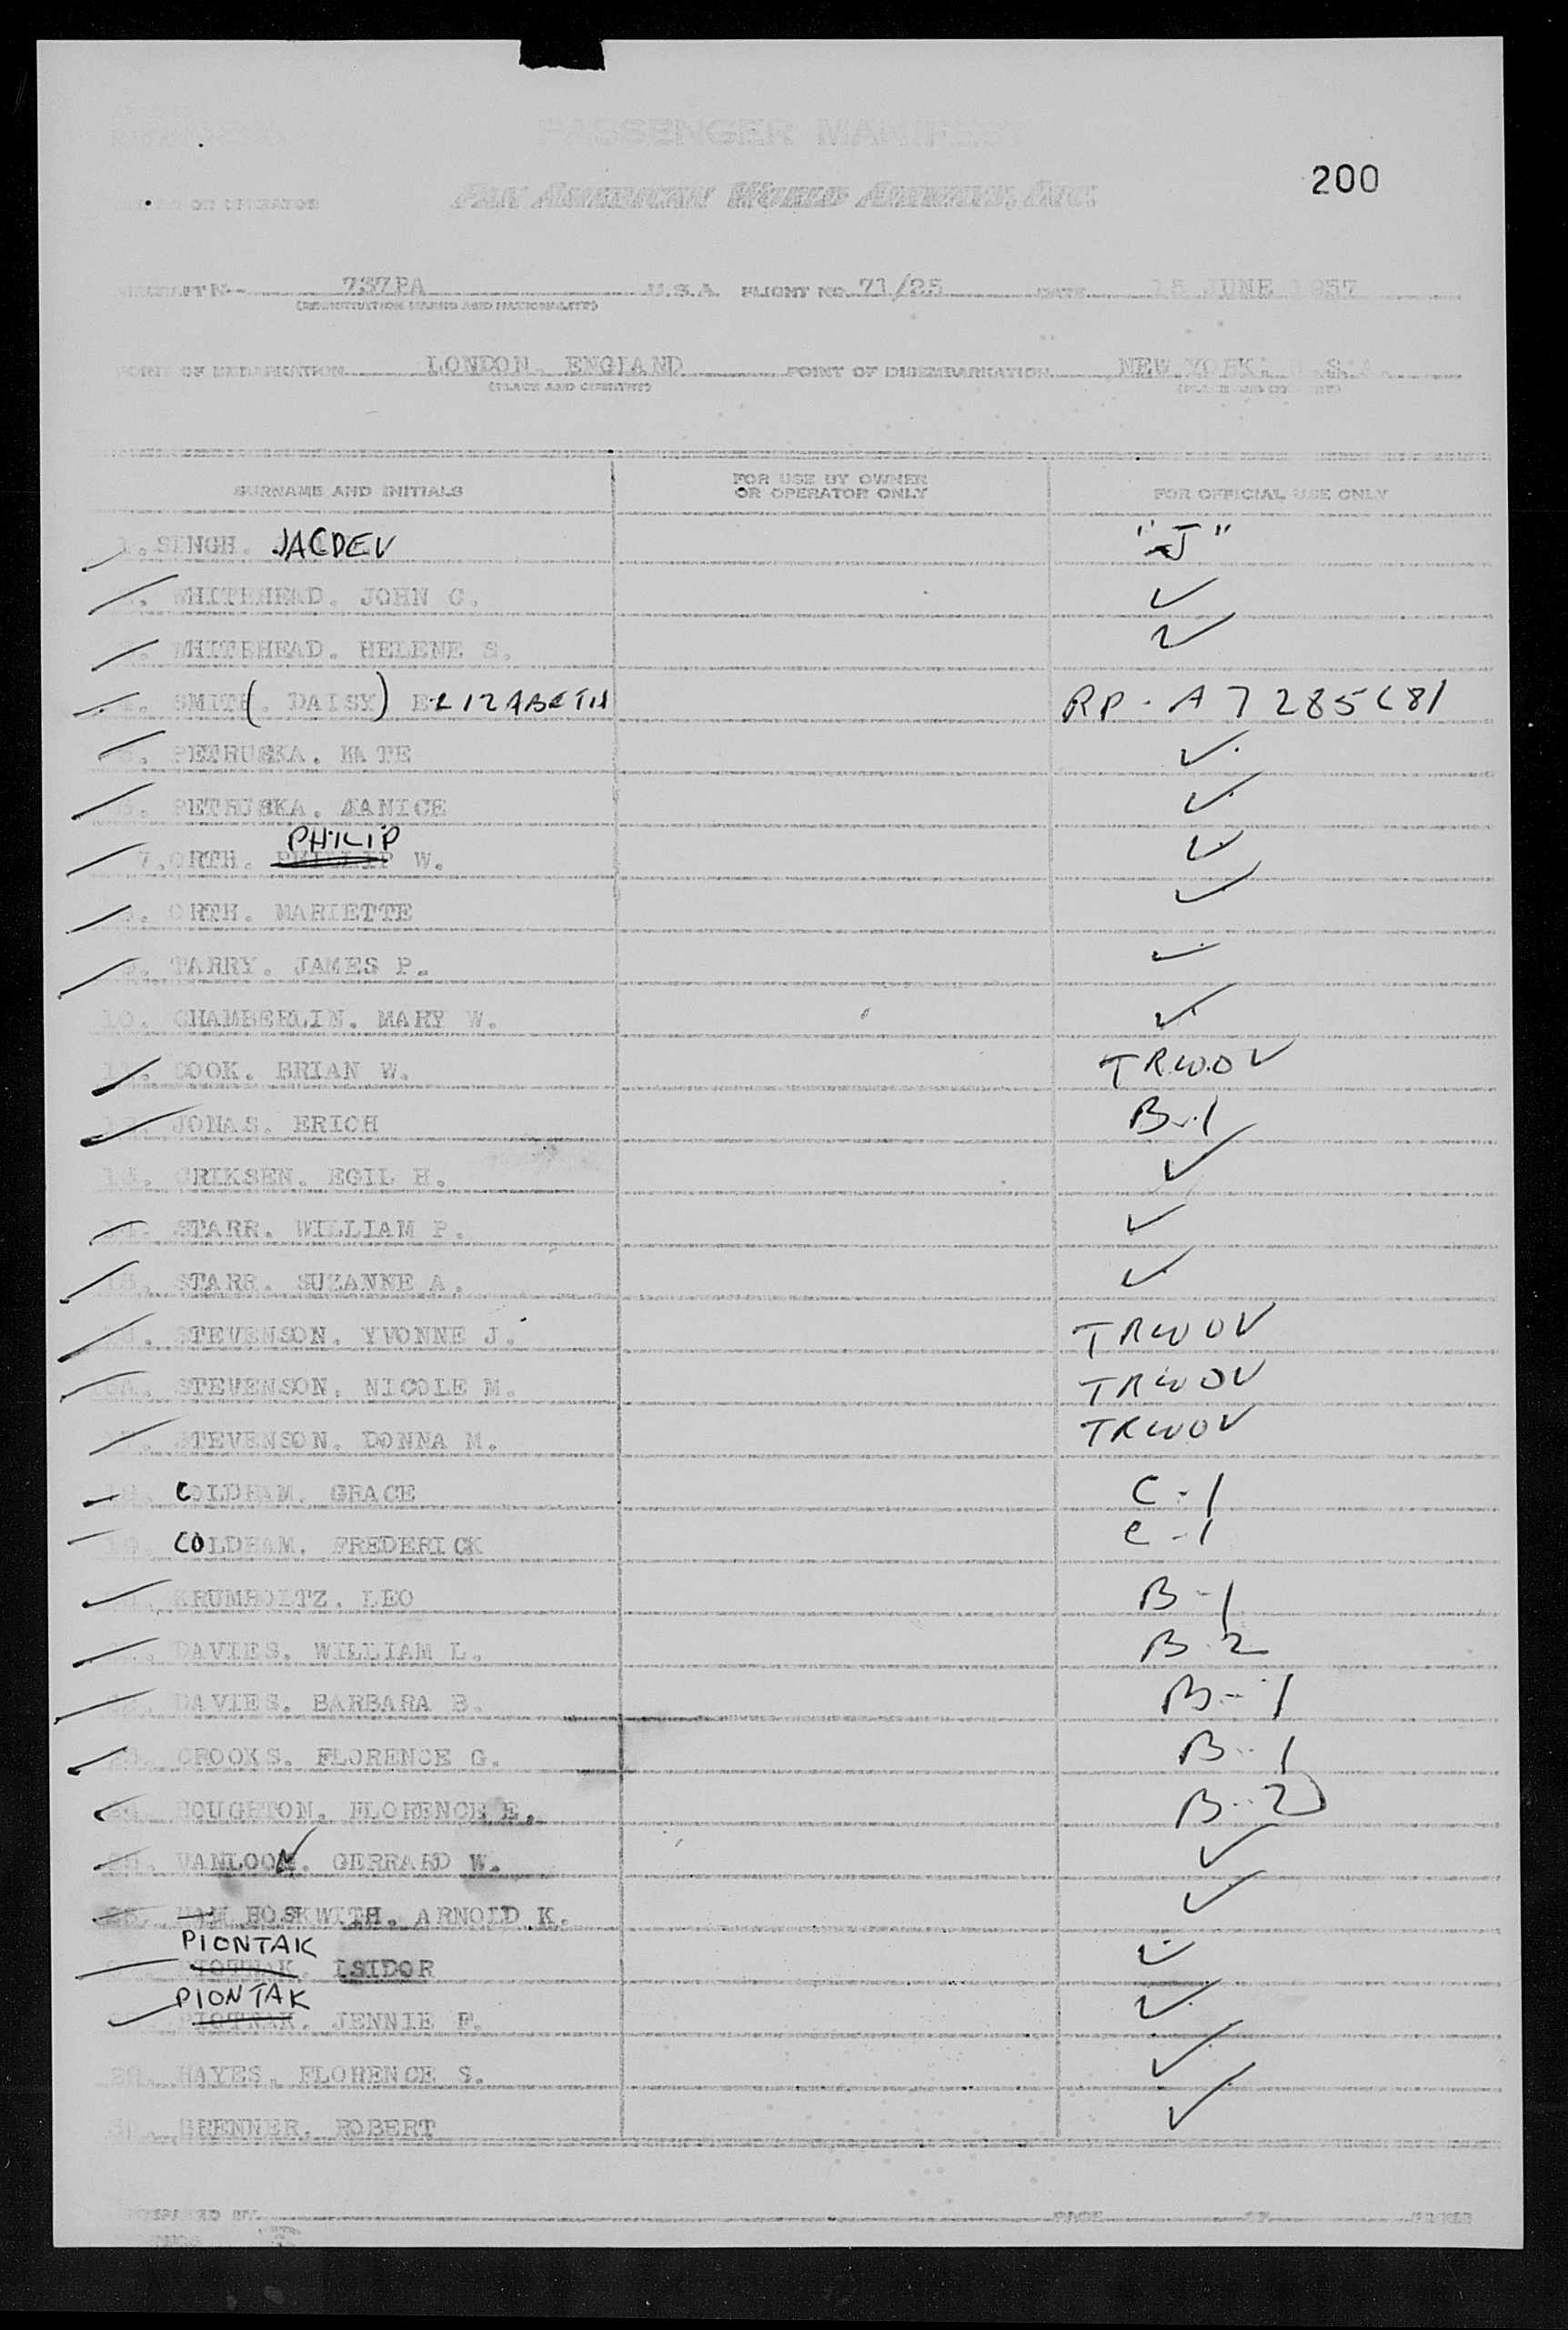 PASSENGER MANIFEST
200
OR OPERATOR PAN AMERICAN WORLD AIRWAYS, INC.
AIRCRAFT N- 737PA U.S.A. FLIGHT NO. 71/25 DATE 15 JUNE 1957
(REGISTRATION MARKS AND NATIONALITY)
PORT OF EMBARKATION LONDON. ENGLAND POINT OF DISEMBARKATION NEW YORK. U.S.A.
(PLACE AND COUNTRY) (PLACE AND COUNTRY)
SURNAME AND INITIALS FOR USE BY OWNER OR OPERATOR ONLY FOR OFFICIAL USE ONLY
1. SINGH. JAGDEV "J"
2. WHITEHEAD. JOHN C. ✓
3. WHITEHEAD. HELENE S. ✓
4. SMITH (. DAISY) ELIZABETH RP. A7285681
5. PETRUSKA. KATE ✓
6. PETRUSKA. JANICE ✓
PHILIP
7. ORTH. PHILLIP W. ✓
8. ORTH. MARIETTE ✓
9. TARRY. JAMES P. ✓
10. CHAMBERLIN. MARY W. ✓
11. COOK. BRIAN W. TRWOV
12. JONAS. ERICH B-1
13. ERIKSEN. EGIL H. ✓
14. STARR. WILLIAM P. ✓
15. STARR. SUZANNE A. ✓
16. STEVENSON. YVONNE J. TRWOV
16A. STEVENSON. NICOLE M. TRWOV
17. STEVENSON. DONNA M. TRWOV
18. COLDHAM. GRACE C-1
19. COLDHAM. FREDERICK C-1
20. KRUMHOLTZ. LEO B-1
21. DAVIES. WILLIAM L. B-2
22. DAVIES. BARBARA B. B-1
23. CROOKS. FLORENCE G. B-1
24. HOUGHTON. FLORENCE E. B-2
25. VANLOON. GERRARD W. ✓
26. BOSKWITH. ARNOLD K. ✓
PIONTAK
27. PIOTNAK. ISIDOR ✓
PIONTAK
28. PIOTNAK. JENNIE F. ✓
29. HAYES. FLORENCE S. ✓
30. BRENNER. ROBERT ✓
PREPARED BY PAGE OF PAGES